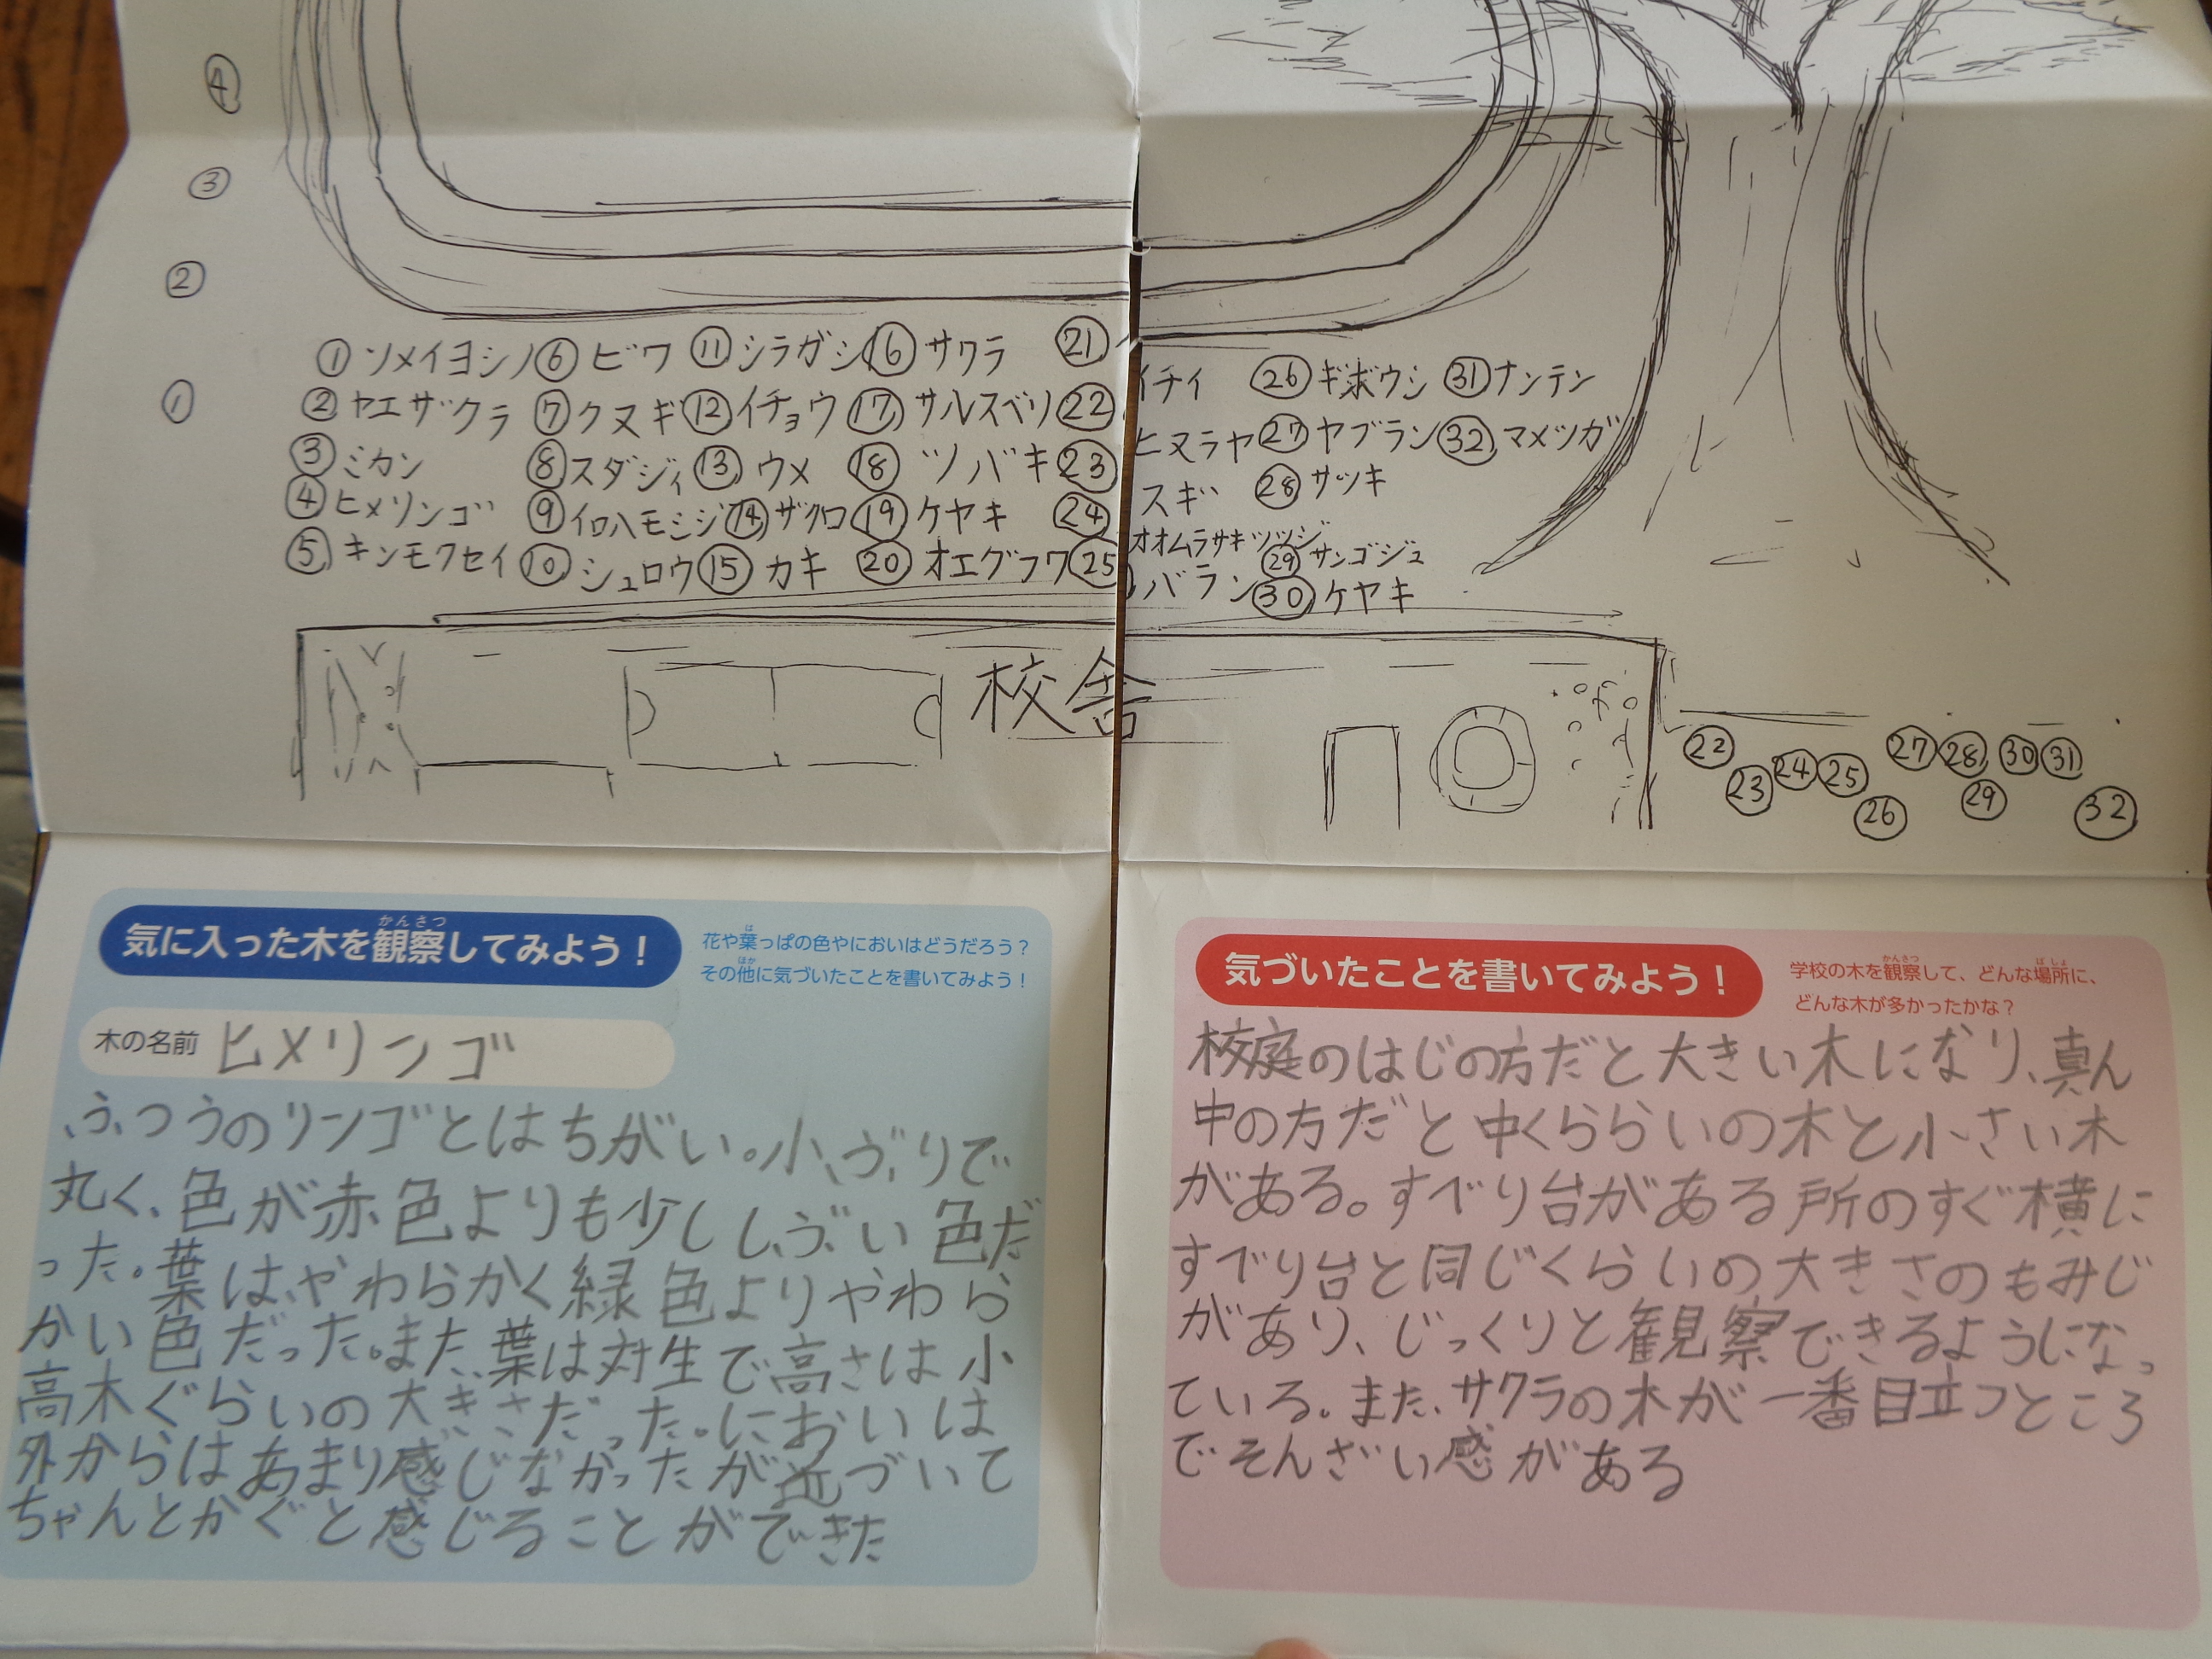 ④
③
②
①
①ソメイヨシノ ⑥ビワ ⑪シラガシ ⑯サクラ ㉑イチイ ㉖ギボウシ ㉛ナンテン
②ヤエザクラ ⑦クヌギ ⑫イチョウ ⑰サルスベリ ㉒ヒヌラヤ ㉗ヤブラン ㉜マメツガ
③ミカン ⑧スダジィ ⑬ウメ ⑱ツバキ ㉓スギ ㉘サツキ
④ヒメリンゴ ⑨イロハモミジ ⑭ザクロ ⑲ケヤキ ㉔オオムラサキツツジ ㉙サンゴジュ
⑤キンモクセイ ⑩シュロウ ⑮カキ ⑳オエグラワ ㉕バラン ㉚ケヤキ
校舎
㉒ ㉓ ㉔ ㉕ ㉖ ㉗ ㉘ ㉙ ㉚ ㉛ ㉜
気に入った木を観察してみよう!
かんさつ
花や葉っぱの色やにおいはどうだろう?
その他に気づいたことを書いてみよう!
木の名前 ヒメリンゴ
ふつうのリンゴとはちがい。小ぶりで
丸く、色が赤色よりも少ししぶい色だ
った。葉は、やわらかく緑色よりやわら
かい色だった。また、葉は対生で高さは小
高木ぐらいの大きさだった。においは
外からはあまり感じなかったが近づいて
ちゃんとかぐと感じることができた
気づいたことを書いてみよう!
学校の木を観察して、どんな場所に、
どんな木が多かったかな?
校庭のはじの方だと大きい木になり、真ん
中の方だと中くららいの木と小さい木
がある。すべり台がある所のすぐ横に
すべり台と同じくらいの大きさのもみじ
があり、じっくりと観察できるようになっ
ている。また、サクラの木が一番目立つところ
でそんざい感がある